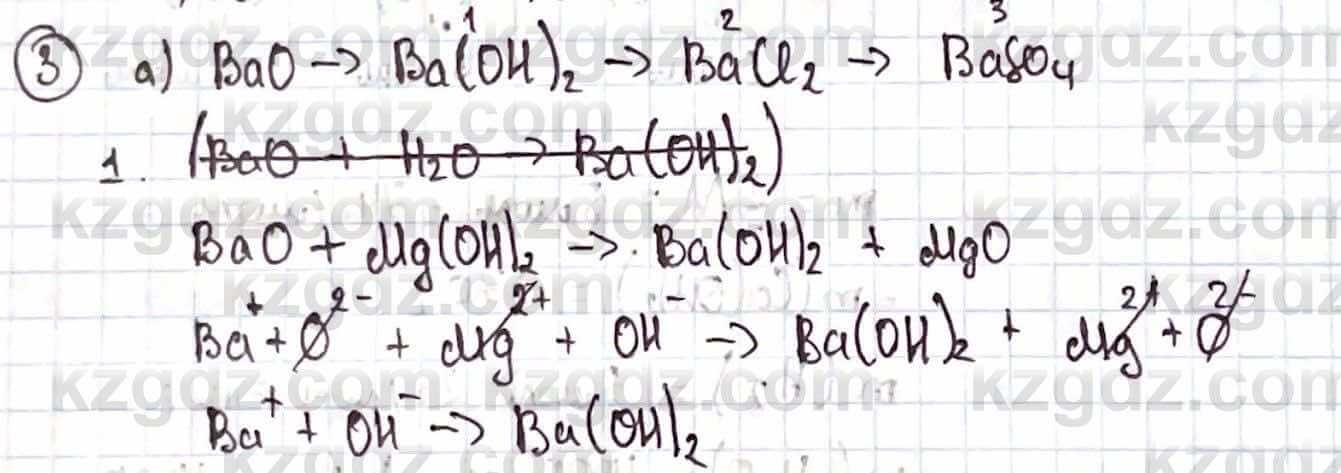 ③ а) BaO → Ba(OH)₂ →¹ BaCl₂ →² BaSO₄ ³
1. (BaO + H₂O → Ba(OH)₂)
BaO + Mg(OH)₂ → Ba(OH)₂ + MgO
Ba⁺ + O²⁻ + Mg²⁺ + OH⁻ → Ba(OH)₂ + Mg²⁺ + O²⁻
Ba⁺ + OH⁻ → Ba(OH)₂
kzgdz.com